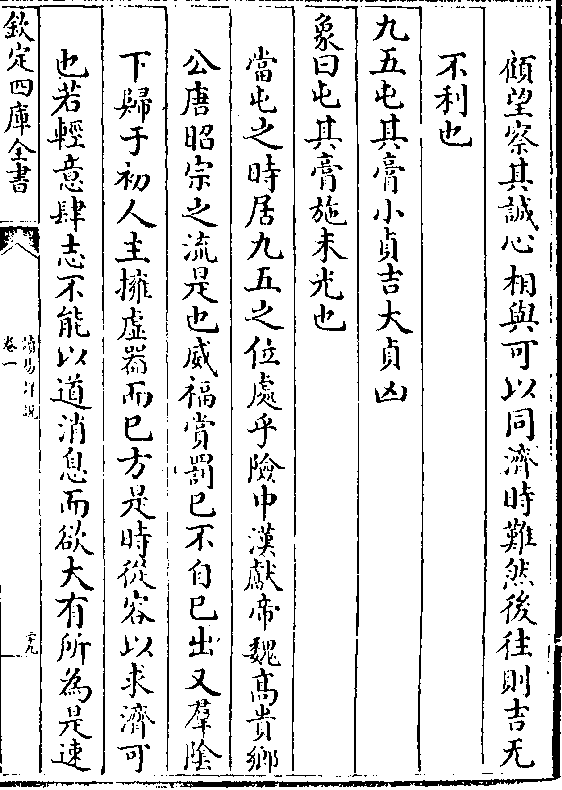 頋望察其誠心相與可以同濟時難然後往則吉无
不利也
九五屯其膏小貞吉大貞凶
象曰屯其膏施未光也
當屯之時居九五之位處乎險中漢獻帝魏髙貴鄉
公唐昭宗之流是也威福賞罰已不自已出又羣陰
下歸于初人主擁虚器而已方是時從容以求濟可
也若輕意肆志不能以道消息而欲大有所為是速
欽定四庫全書
讀易詳說
卷一
二十九